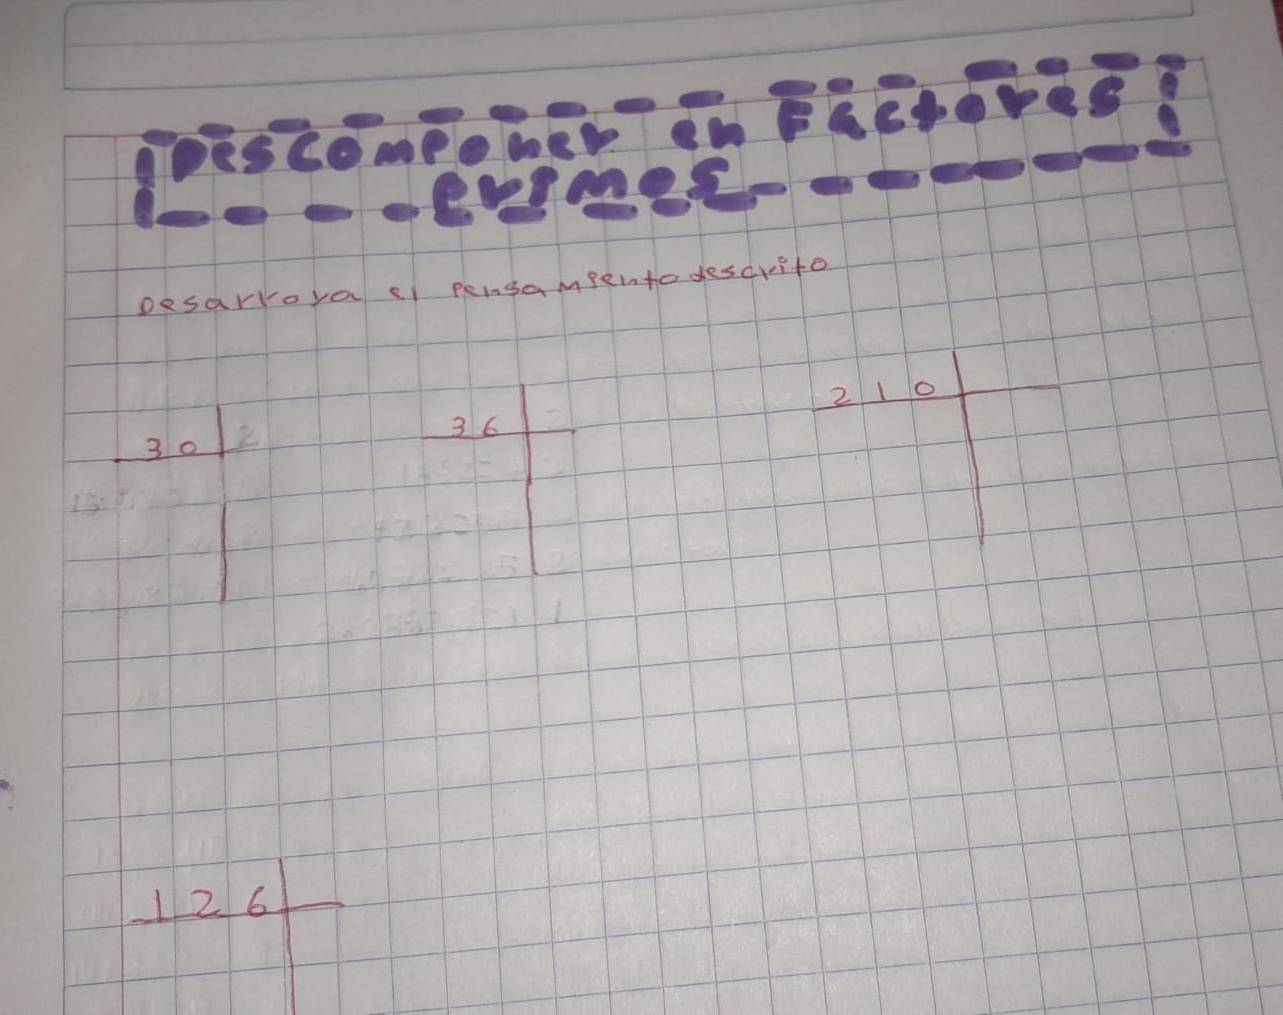 Descomponer en Factores
primos
Desarroya el pensamiento descrito
30 2
36
210
15
126